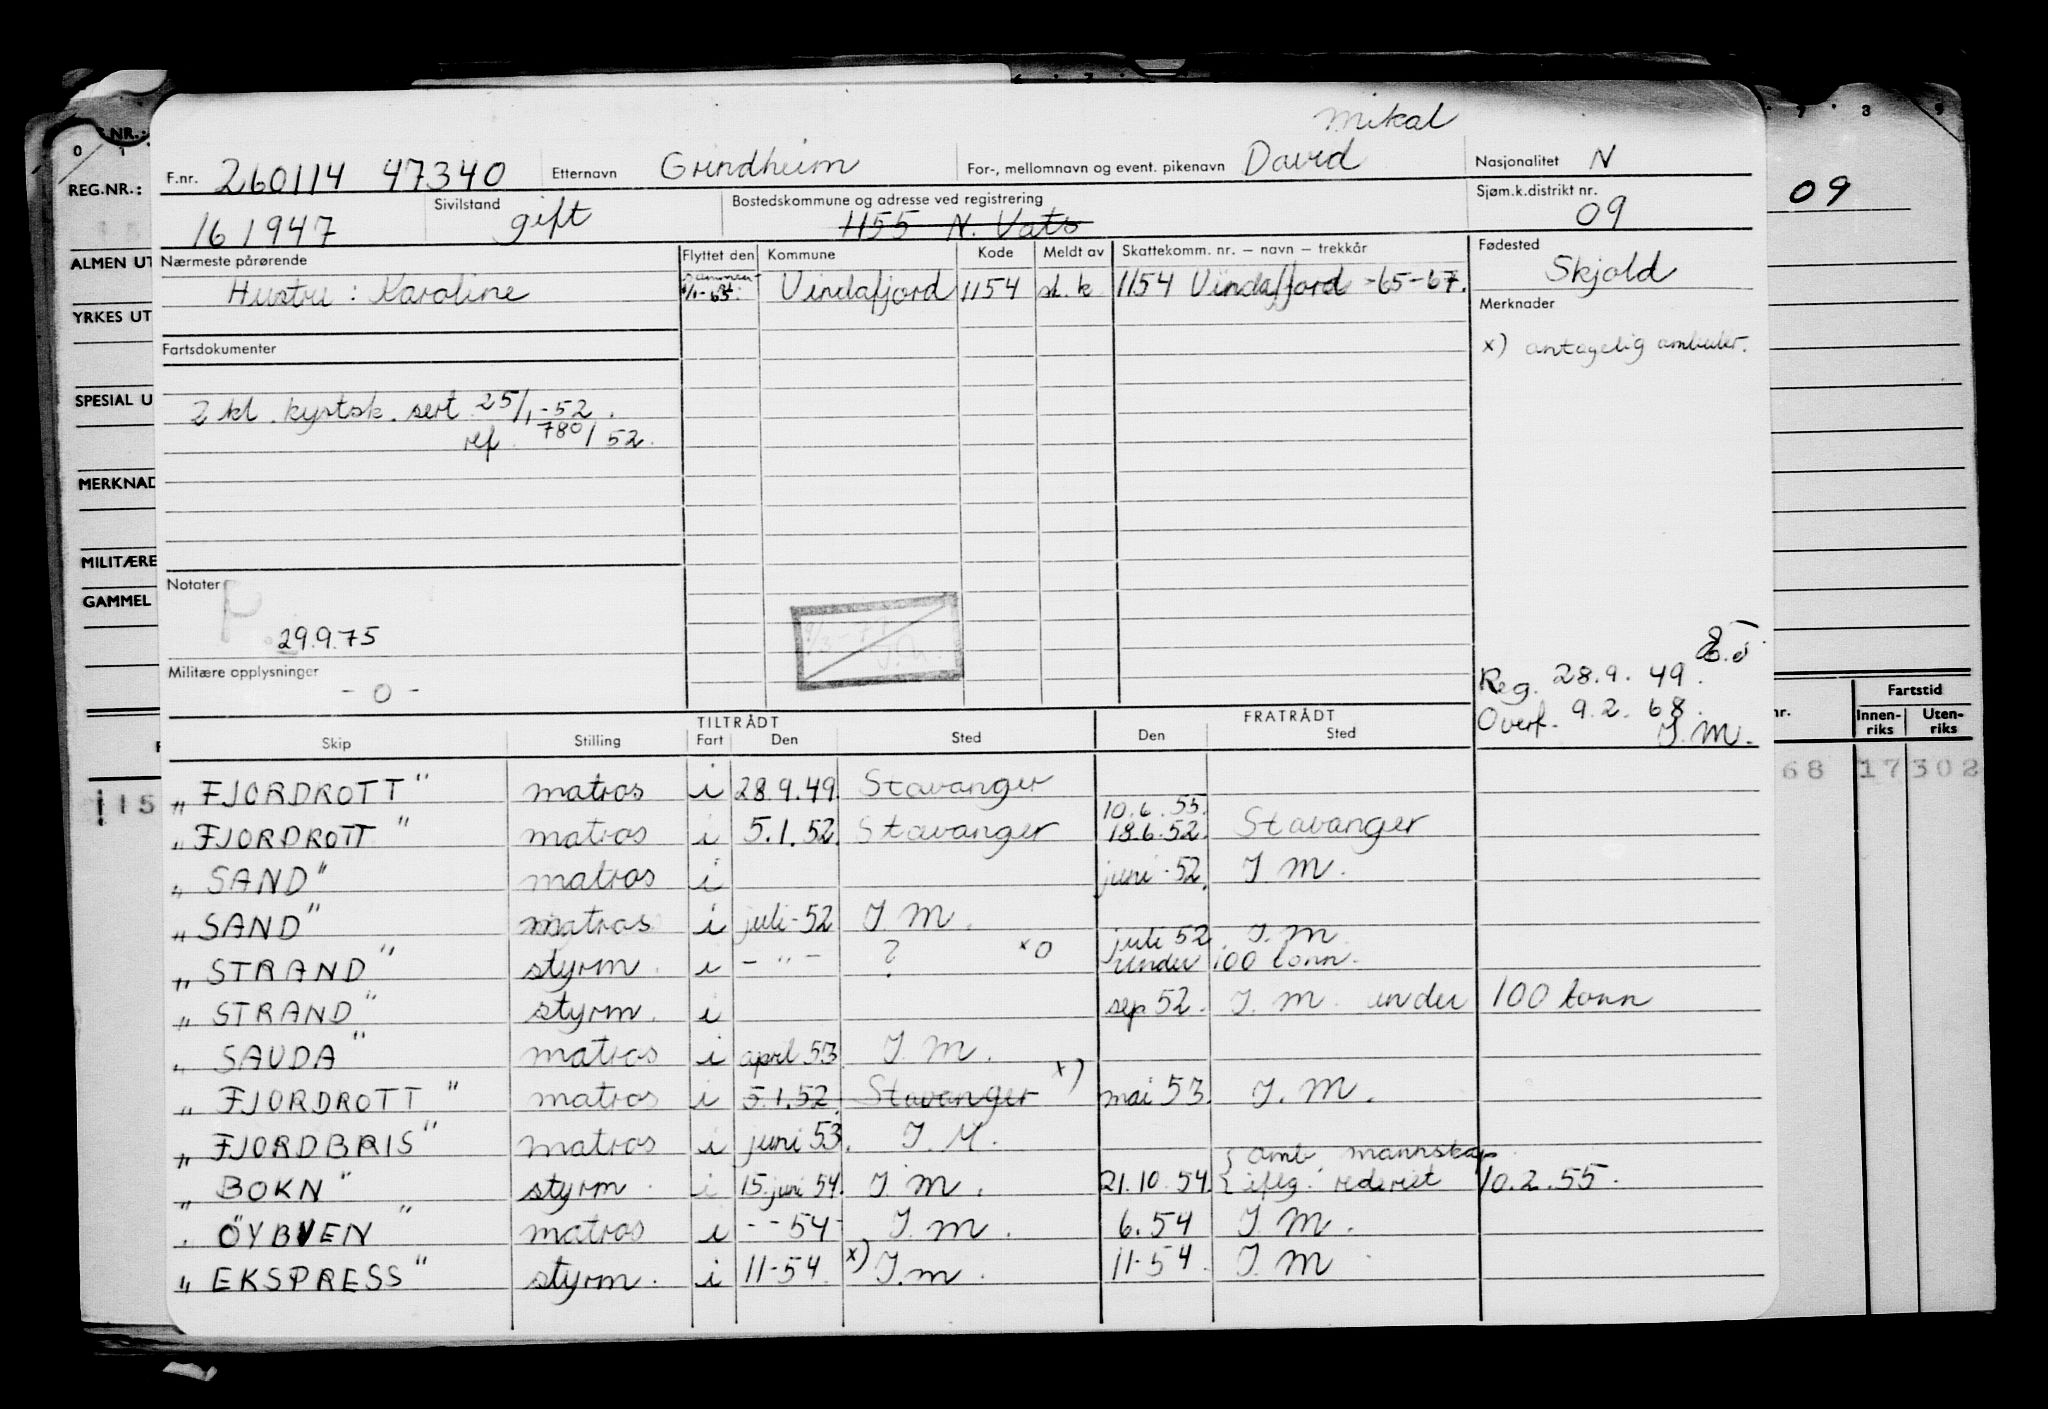 Mikal
F.nr. 260114 47340 Etternavn Grindheim For-, mellomnavn og event. pikenavn David Nasjonalitet N
REG.NR.: 09
161947 Sivilstand gift Bostedskommune og adresse ved registrering 1155 N. Vats Sjøm.k.distrikt nr. 09
ALMEN UT Nærmeste pårørende Flyttet den Kommune Kode Meldt av Skattekomm. nr. – navn – trekkår Fødested
Hustru : Karoline 1/1-65. Vindafjord 1154 sk. k. 1154 Vindafjord -65-67. Skjold
YRKES UT Merknader
Fartsdokumenter x) antagelig ambuler.
SPESIAL U 2 kl. kystsk. sert 25/1-52.
ref. 780/52.
MERKNAD
MILITÆRE
Notater
GAMMEL P.
29.9.75
Militære opplysninger - 0 -
Reg. 28.9.49.
Overf. 9.2.68.
J.M.
Fartstid
Innen-riks Uten-riks
TILTRÅDT FRATRÅDT
Skip Stilling Fart Den Sted Den Sted
68 17302
115
„FJORDROTT" matros i 28.9.49 Stavanger 10.6.55.
„FJORDROTT" matros i 5.1.52. Stavanger 18.6.52. Stavanger
„SAND" matros i juni-52. J.M.
„SAND" matros i juli-52 J.M. juli 52. J.M.
„STRAND" styrm. i - " - ? x0 under 100 tonn.
„STRAND" styrm. i sep 52. J.M. under 100 tonn
„SAUDA" matros i april 53 J.M.
„FJORDROTT" matros i 5.1.52. Stavanger x) mai 53. J.M.
„FJORDBRIS" matros i juni 53. J.M.
{ amb. mannskap
„BOKN" styrm. i 15.juni 54. J.M. 21.10.54. { iflg. rederiet 10.2.55.
„ÖYBVEN" matros i - - 54 J.M. 6.54 J.M.
„EKSPRESS" styrm. i 11-54. x) J.M. 11-54 J.M.